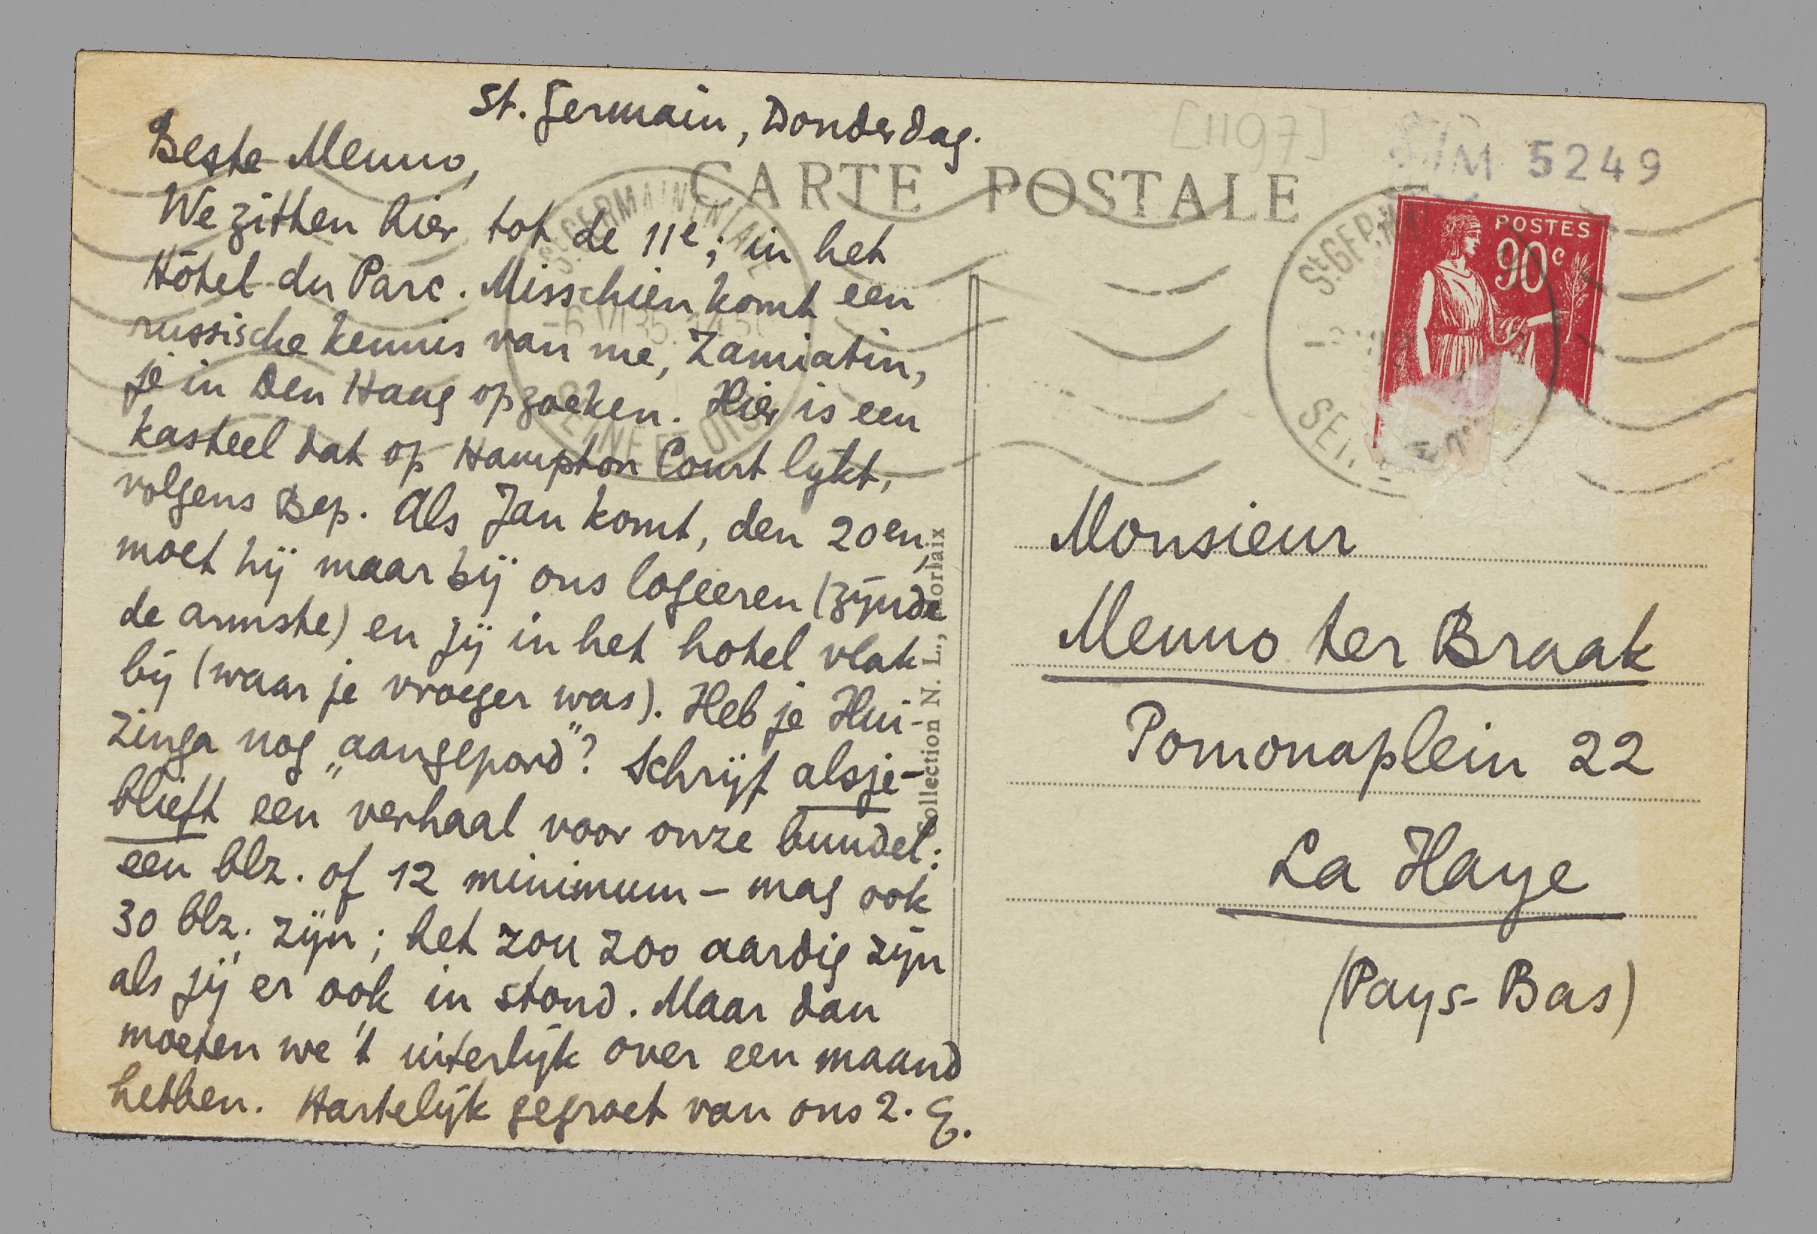 St. Germain, Donderdag.
Beste Menno,
We zitten hier tot de 11e; in het
Hôtel du Parc. Misschien komt een
russische kennis van me, Zamiatin,
je in Den Haag opzoeken. Hier is een
kasteel dat op Hampton Court lijkt,
volgens Bep. Als Jan komt, den 20en,
moet hij maar bij ons logeeren (zijnde
de armste) en jij in het hotel vlak
bij (waar je vroeger was). Heb je Hui-
zinga nog „aangepord”? Schrijf alsje-
blieft een verhaal voor onze bundel:
een blz. of 12 minimum – mag ook
30 blz. zijn; het zou zoo aardig zijn
als jij er ook in stond. Maar dan
moeten we 't uiterlijk over een maand
hebben. Hartelijk gegroet van ons 2. E.
CARTE POSTALE
[1197]
M 5249
POSTES
90c
ST GERMAIN EN LAYE
SEINE ET OISE
Collection N. L., Morlaix
Monsieur
Menno ter Braak
Pomonaplein 22
La Haye
(Pays-Bas)